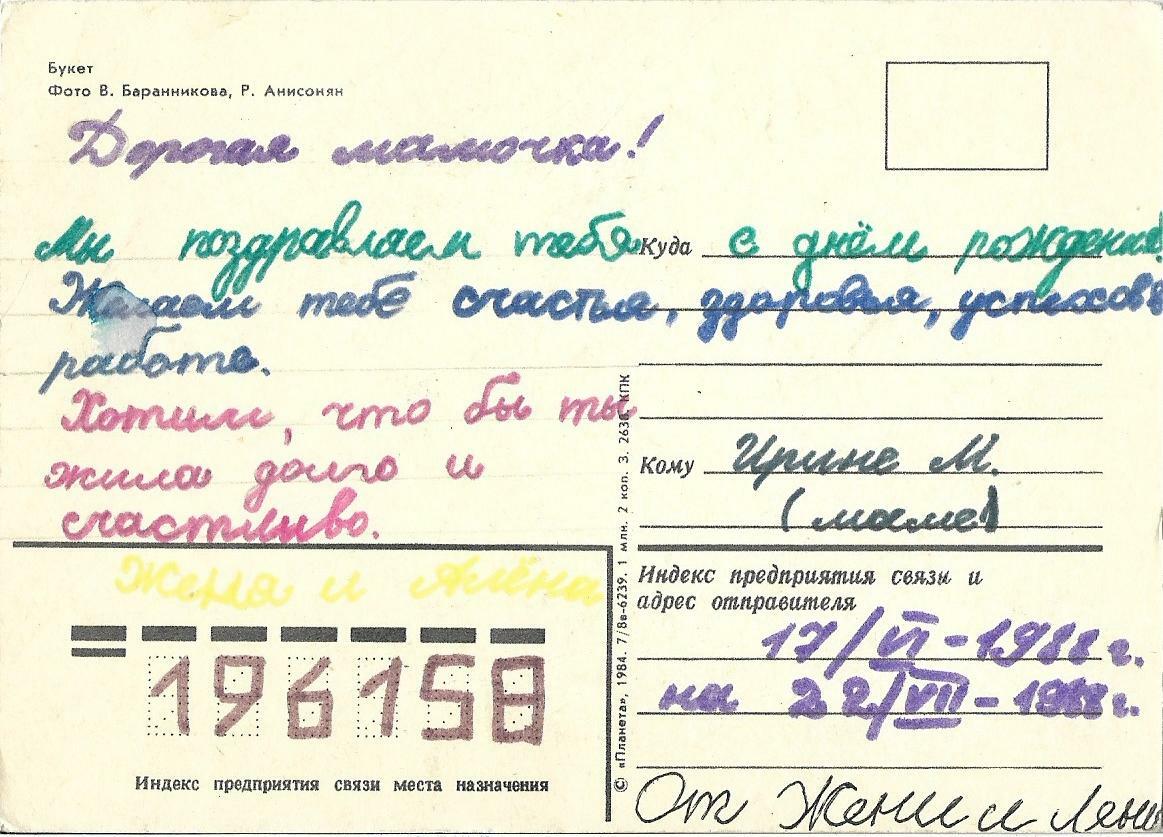 Букет
Фото В. Баранникова, Р. Анисонян
Дорогая мамочка!
Мы поздравляем тебя с днём рождения!
Желаем тебе счастья, здоровья, успехов в
работе.
Хотим, что бы ты
жила долго и
счастливо.
Женя и Алёна
196158
Индекс предприятия связи места назначения
© «Планета», 1984. 7/8в-6239. 1 млн. 2 коп. З. 2638. КПК
Куда
Кому Ирине М.
(маме)
Индекс предприятия связи и
адрес отправителя
17/VI-1988 г.
на 22/VII-1988 г.
От Жени и